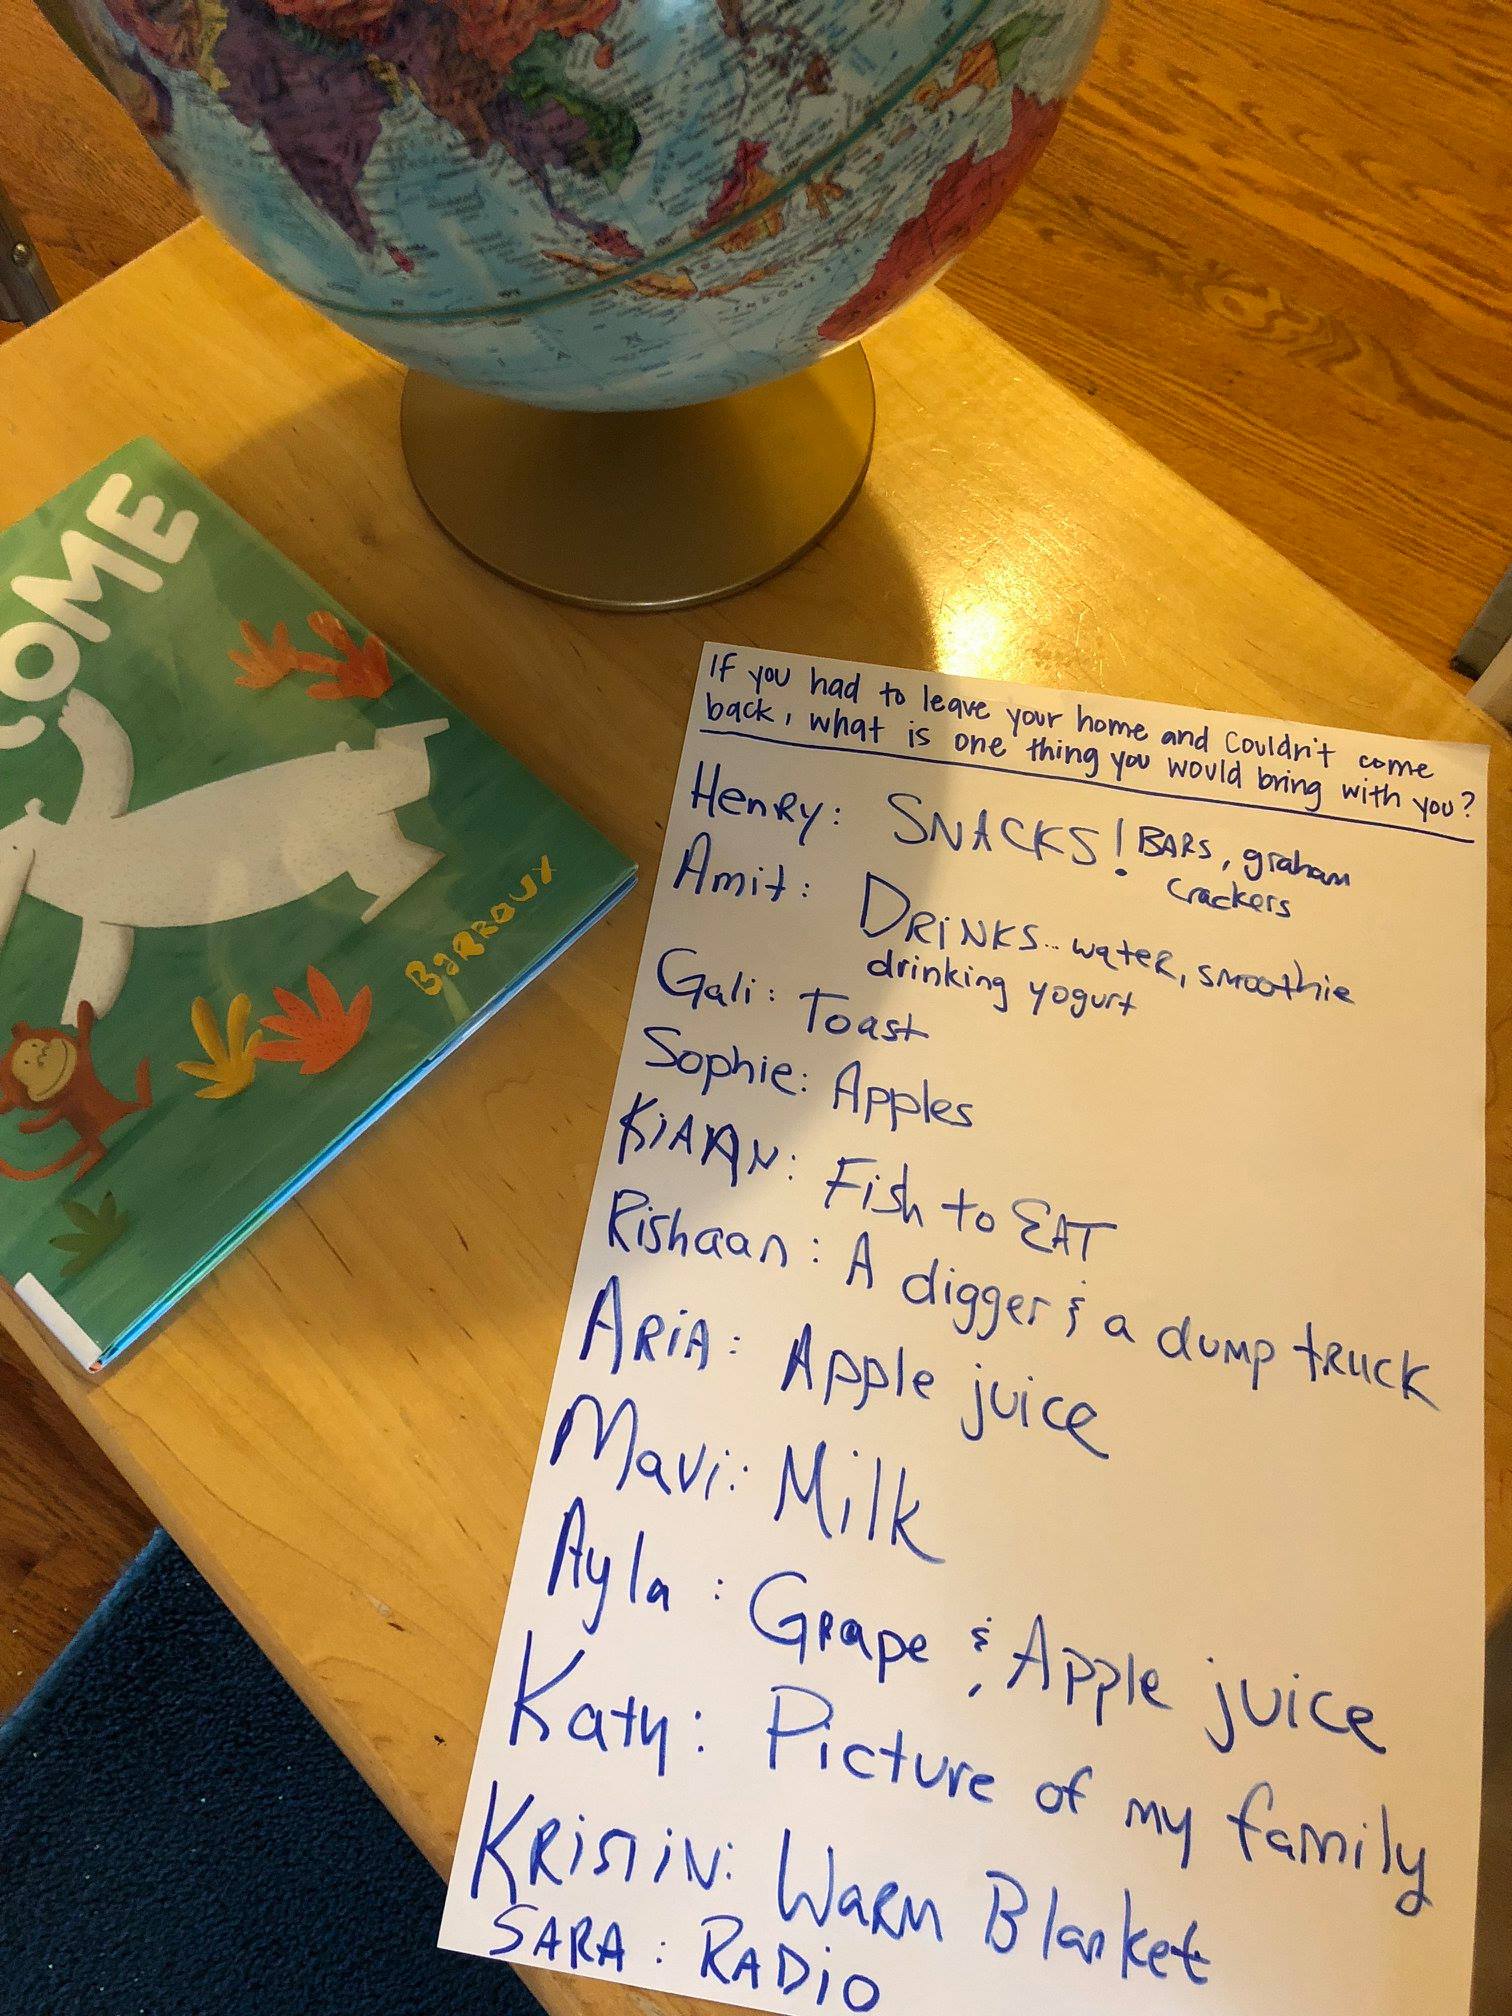 COME
BARROUX
If you had to leave your home and couldn't come
back, what is one thing you would bring with you?
Henry: SNACKS! BARS, graham
crackers
Amit: DRINKS... water, smoothie
drinking yogurt
Gali: Toast
Sophie: Apples
KiAAN: Fish to EAT
Rishaan: A digger & a dump truck
ARiA: Apple juice
Mavi: Milk
Ayla: Grape & Apple juice
Katy: Picture of my family
KRisTiN: WARM Blanket
SARA: RADio